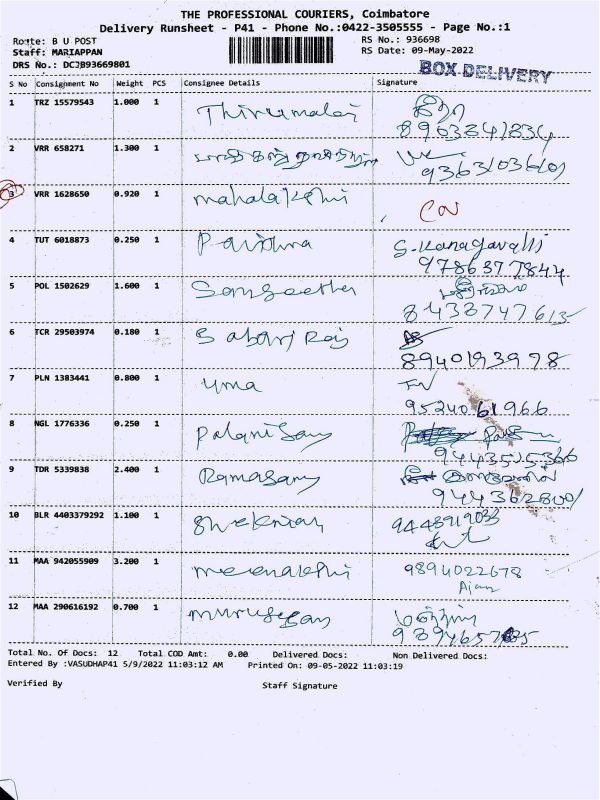 THE PROFESSIONAL COURIERS, Coimbatore
Delivery Runsheet - P41 - Phone No.:0422-3505555 - Page No.:1
Route: B U POST
RS No.: 936698
Staff: MARIAPPAN
RS Date: 09-May-2022
DRS No.: DCJB93669801
BOX DELIVERY
S No Consignment No Weight PCS Consignee Details Signature
1 TRZ 15579543 1.000 1 Thirumalai
8903341834
2 VRR 658271 1.300 1
3 VRR 1628650 0.920 1 mahalakshmi
4 TUT 6018873 0.250 1 S.Kanagavalli
9786377844
5 POL 1502629 1.600 1 Sangeetha
8438747613
6 TCR 29503974 0.180 1 Sabari Raj
8940193978
7 PLN 1383441 0.800 1 uma
9524061966
8 NGL 1776336 0.250 1 Palanisamy
9443515366
9 TDR 5339838 2.400 1 Ramasamy
9443628001
10 BLR 4403379292 1.100 1
11 MAA 942055909 3.200 1 meenakshi 9894022678
12 MAA 290616192 0.700 1 murugesan
Total No. Of Docs: 12 Total COD Amt: 0.00 Delivered Docs: Non Delivered Docs:
Entered By :VASUDHAP41 5/9/2022 11:03:12 AM Printed On: 09-05-2022 11:03:19
Verified By Staff Signature